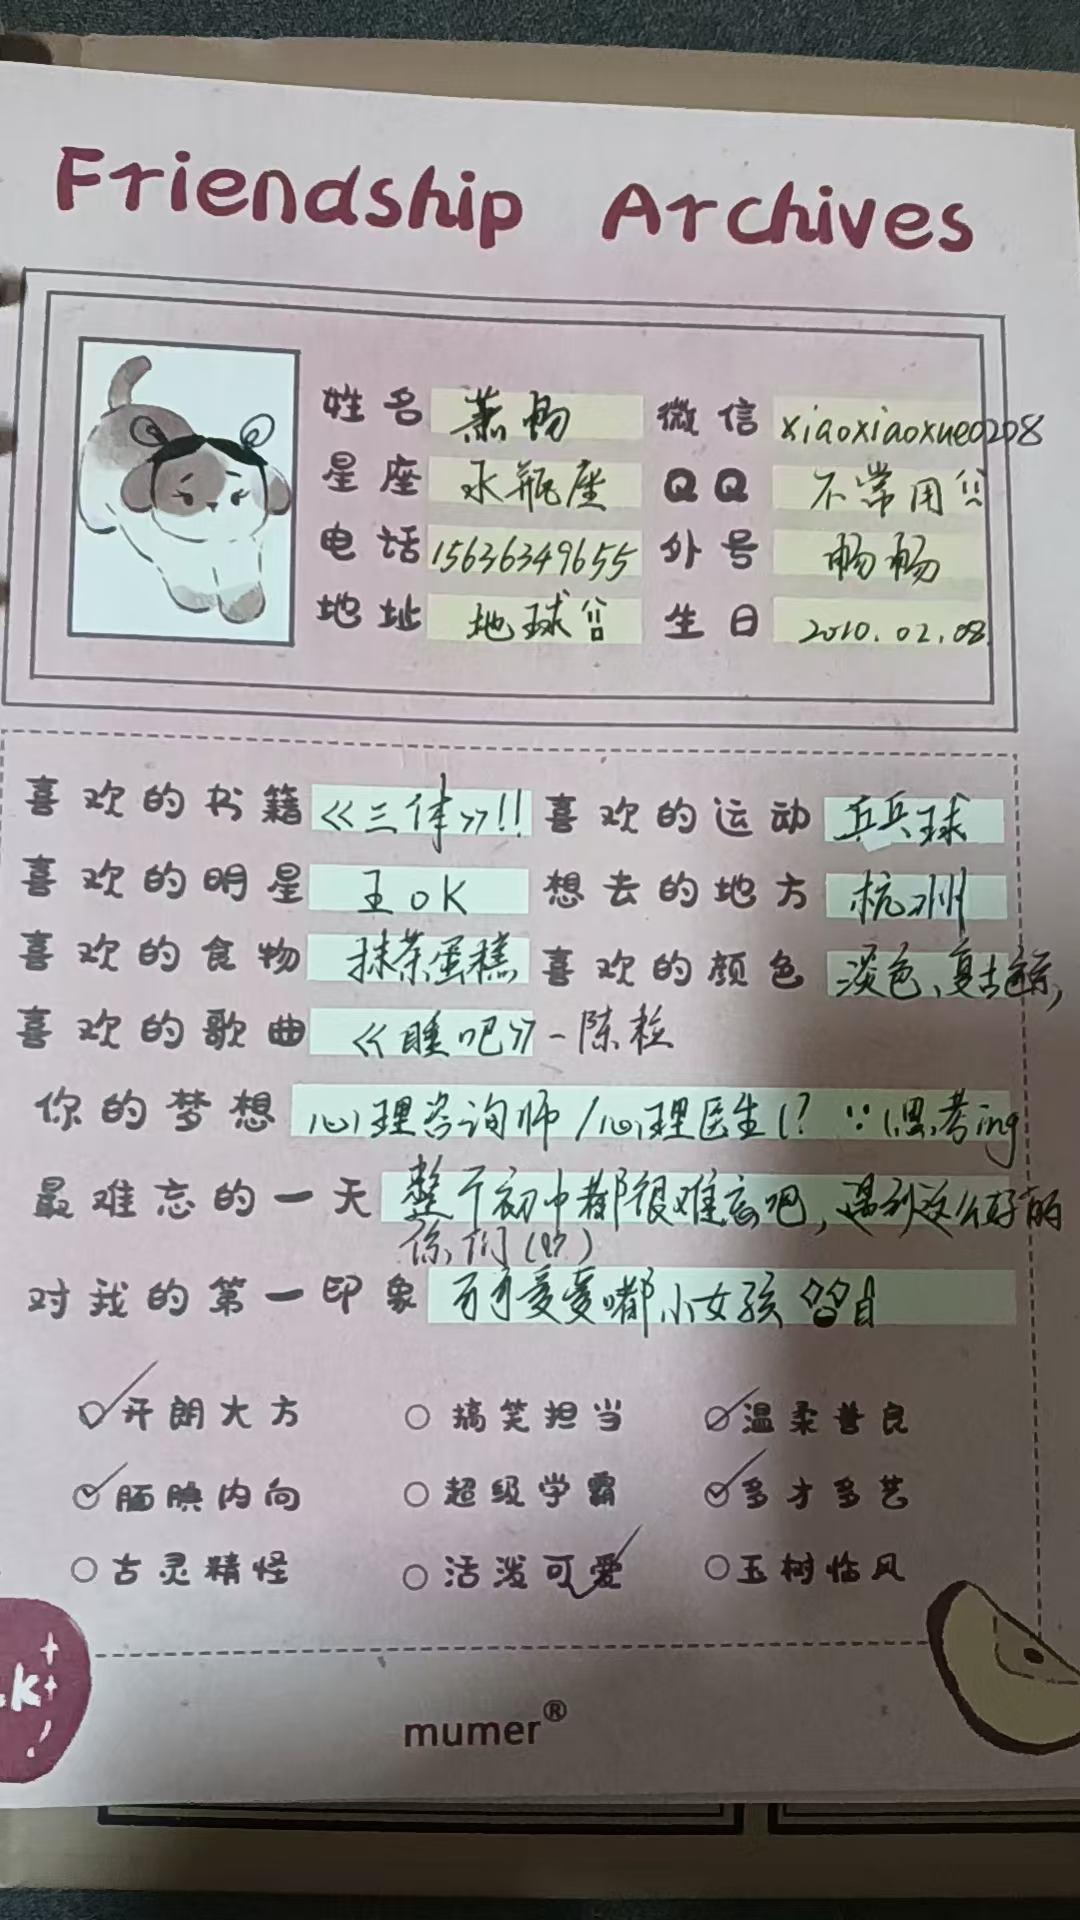 Friendship Archives
姓名 萧畅 微信 xiaoxiaoxue0208
星座 水瓶座 QQ 不常用
电话 15636349655 外号 畅畅
地址 地球 生日 2010.02.08
喜欢的书籍 《三体》!! 喜欢的运动 乒乓球
喜欢的明星 王OK 想去的地方 杭州
喜欢的食物 抹茶蛋糕 喜欢的颜色 淡色、复古
喜欢的歌曲 《睡吧》-陈粒
你的梦想 心理咨询师/心理医生(? (思考ing
最难忘的一天 整个初中都很难忘吧,遇到这么好的
你们
对我的第一印象 可可爱爱嘟小女孩
开朗大方 搞笑担当 温柔善良
腼腆内向 超级学霸 多才多艺
古灵精怪 活泼可爱 玉树临风
mumer®